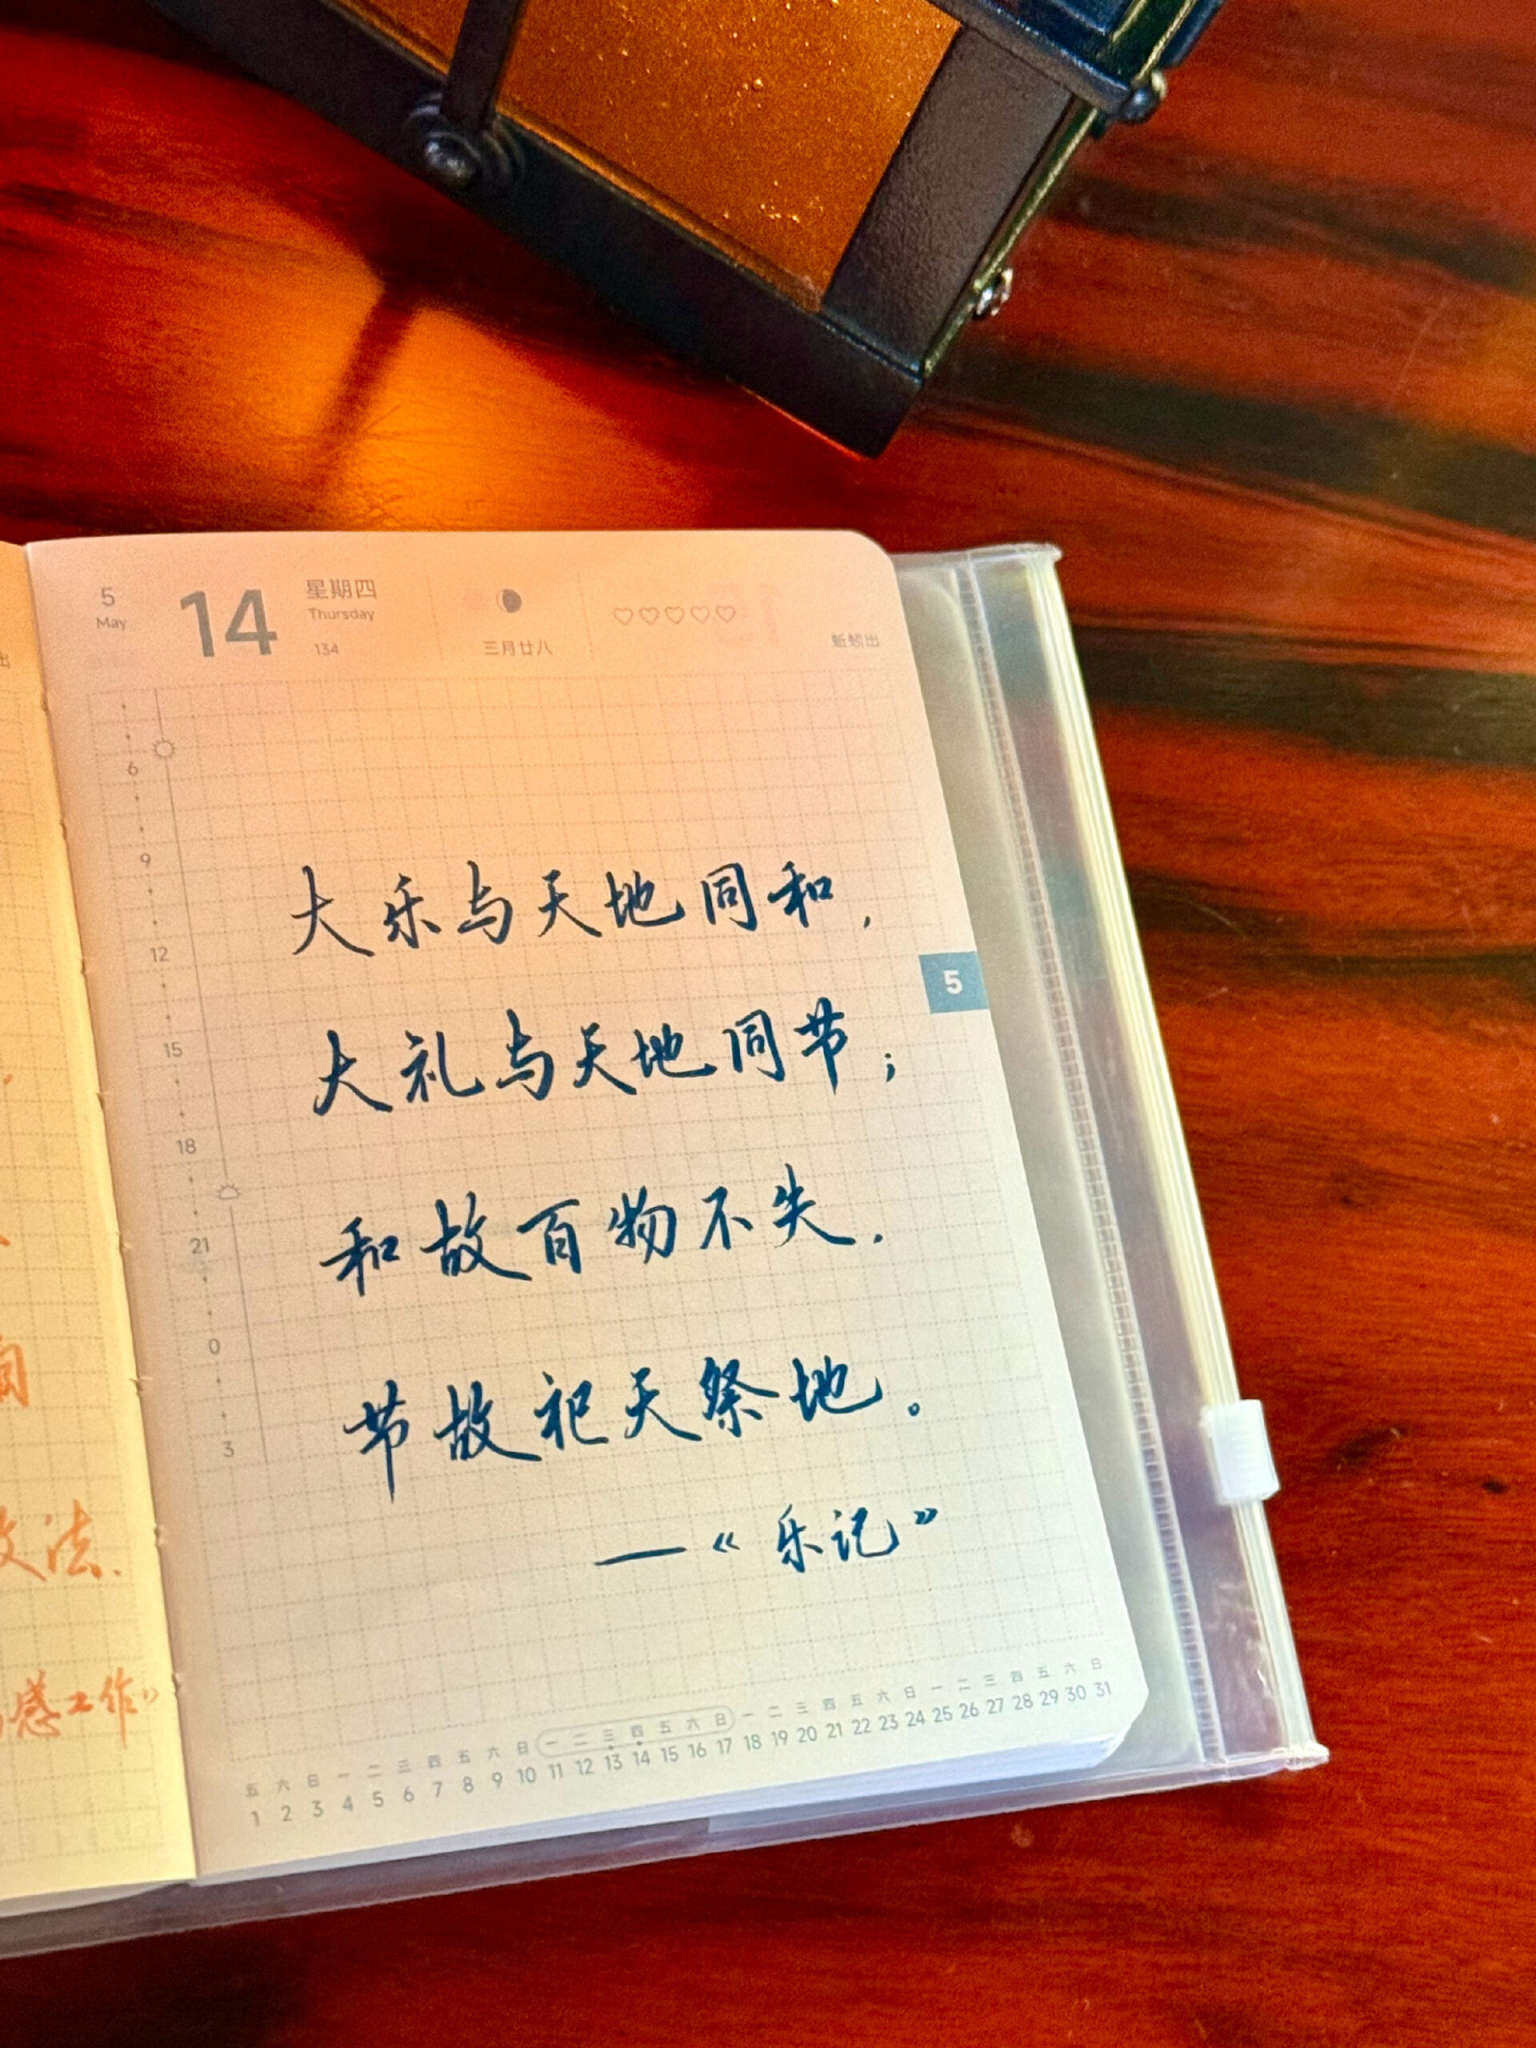 5
May
14
星期四
Thursday
134
三月廿八
蚯蚓出
出
6
9
12
15
18
21
0
3
大乐与天地同和，
大礼与天地同节；
和故百物不失，
节故祀天祭地。
—《乐记》
5
法.
感工作》
五 六 日 一 二 三 四 五 六 日 一 二 三 四 五 六 日 一 二 三 四 五 六 日 一 二 三 四 五 六 日
1 2 3 4 5 6 7 8 9 10 11 12 13 14 15 16 17 18 19 20 21 22 23 24 25 26 27 28 29 30 31